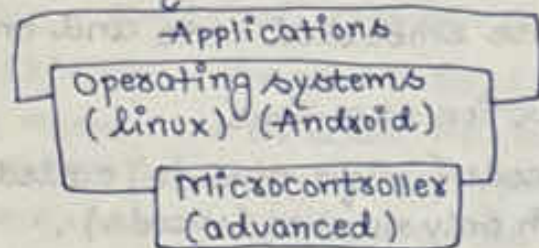 Applications
Operating systems
(linux) (Android)
Microcontroller
(advanced)